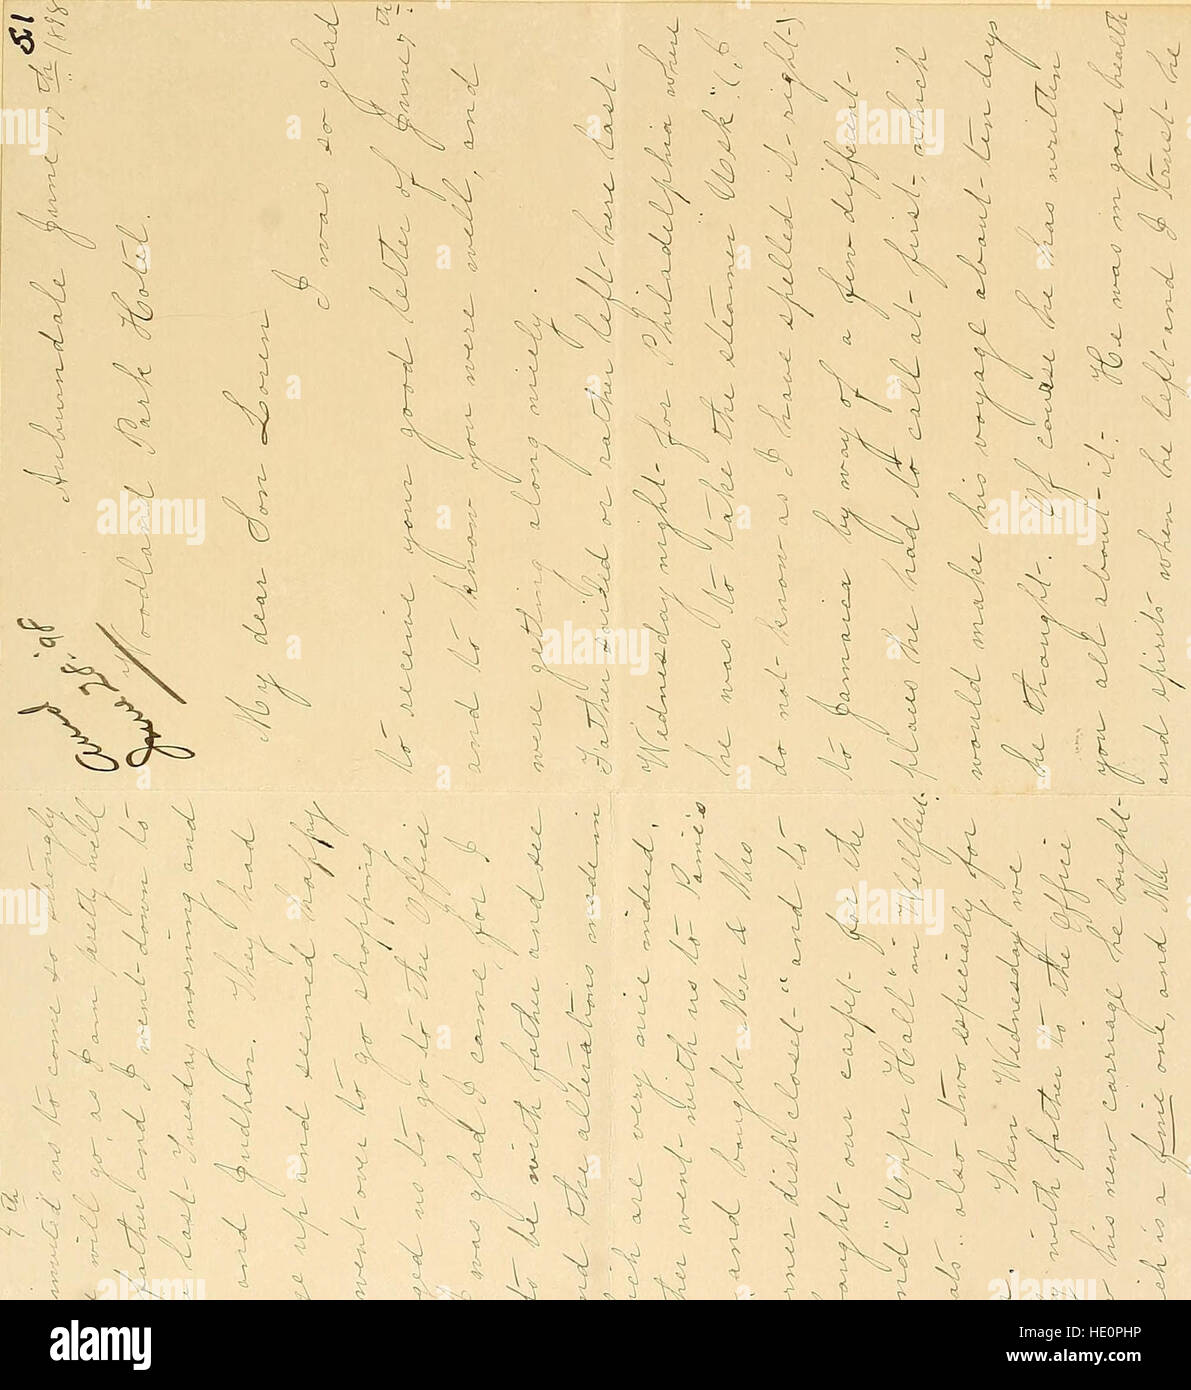 51
Auburndale June 17th 1898
Woodland Park Hotel.
Ansd
June 28. '98
My dear Son Loren
I was so glad
to receive your good letter of June 7th
and to know you were well, and
were getting along nicely.
Father sailed or rather left here last
Wednesday night for Philadelphia where
he was to take the steamer "Usk" (I
do not know as I have spelled it right)
to Jamaica by way of a few different
places he had to call at first, which
would make his voyage about ten days
he thought. Of course he has written
you all about it. He was in good health
and spirits when he left and I trust he
4th
invited us to come so strongly
will go as I am pretty well
father and I went down to
last Tuesday morning and
and Judham. They had
up and seemed happy
went over to go shopping
us to go to the Office
was glad I came, for I
to be with father and see
the alterations made in
are very nice indeed.
went with us to Paine's
and bought Mr & Mrs
dish closet" and to
our carpet for the
"Upper Hall" in Wellfleet.
also two especially for
Then Wednesday we
with father to the Office
his new carriage he bought
is a fine one, and Mr
a alamy
alamy
Image ID: HE0PHP
www.alamy.com